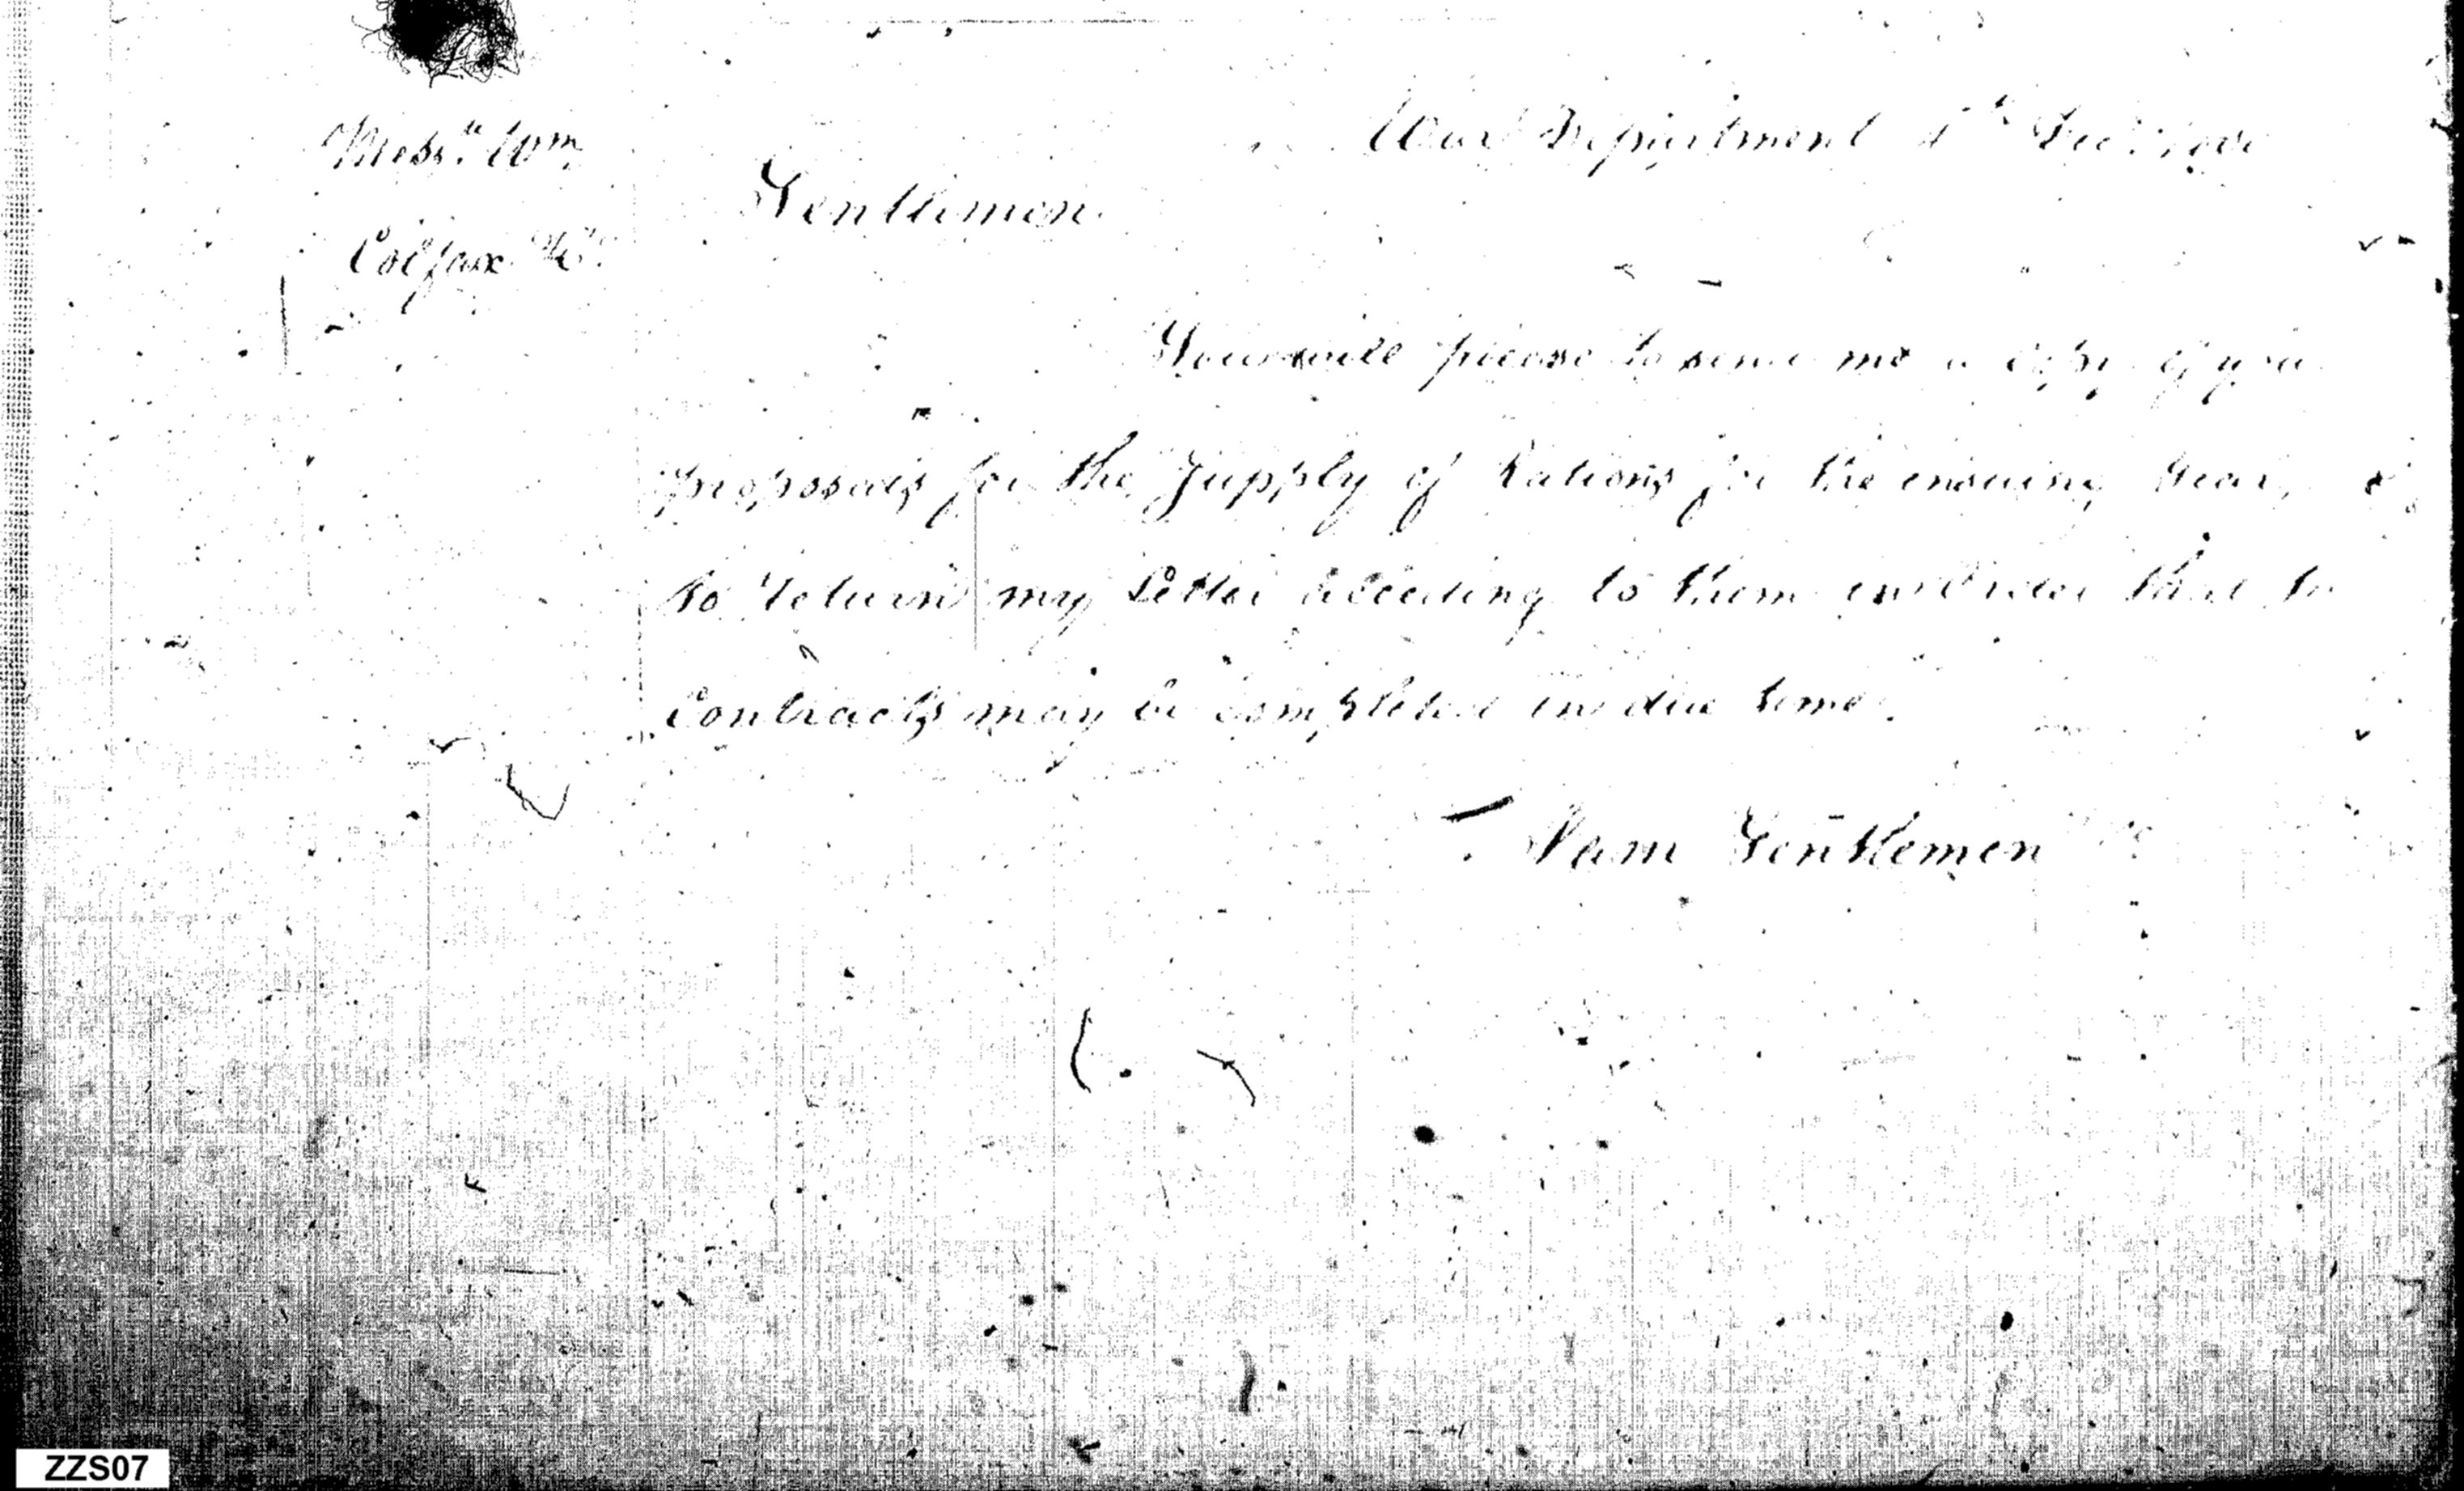 Mess.rs Wm.
Colfax &c.
War Department 4th Dec.r 1800
Gentlemen
You will please to send me a copy of your
proposals for the Supply of Rations for the ensuing Year, &
to return my letter acceeding to them in Order that the
Contracts may be completed in due time.
I am Gentlemen &c
ZZS07